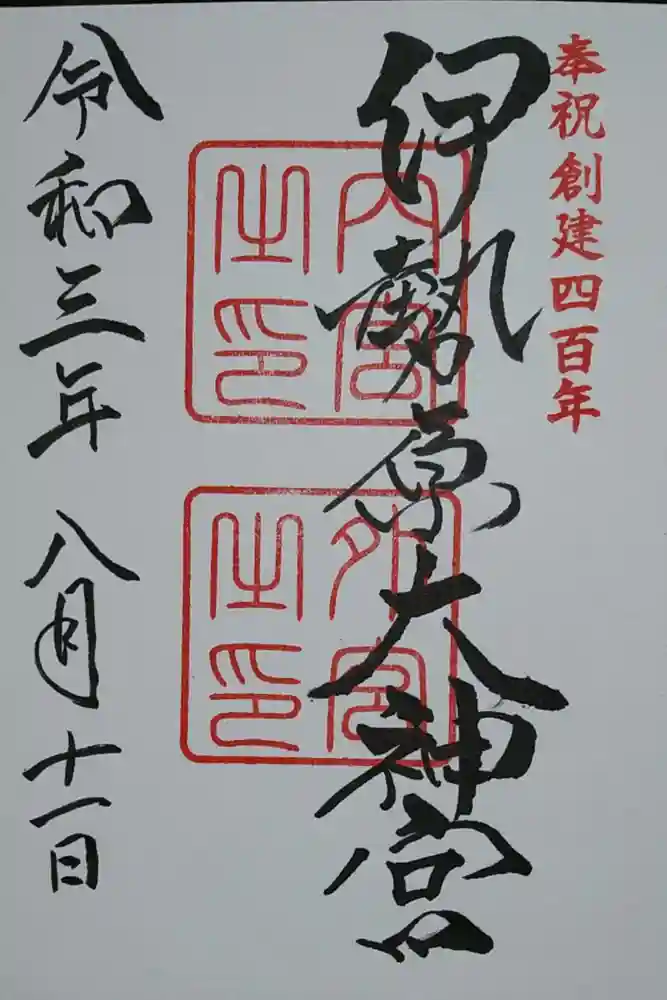 奉祝創建四百年
伊勢原大神宮
内宮
之印
外宮
之印
令和三年 八月十一日